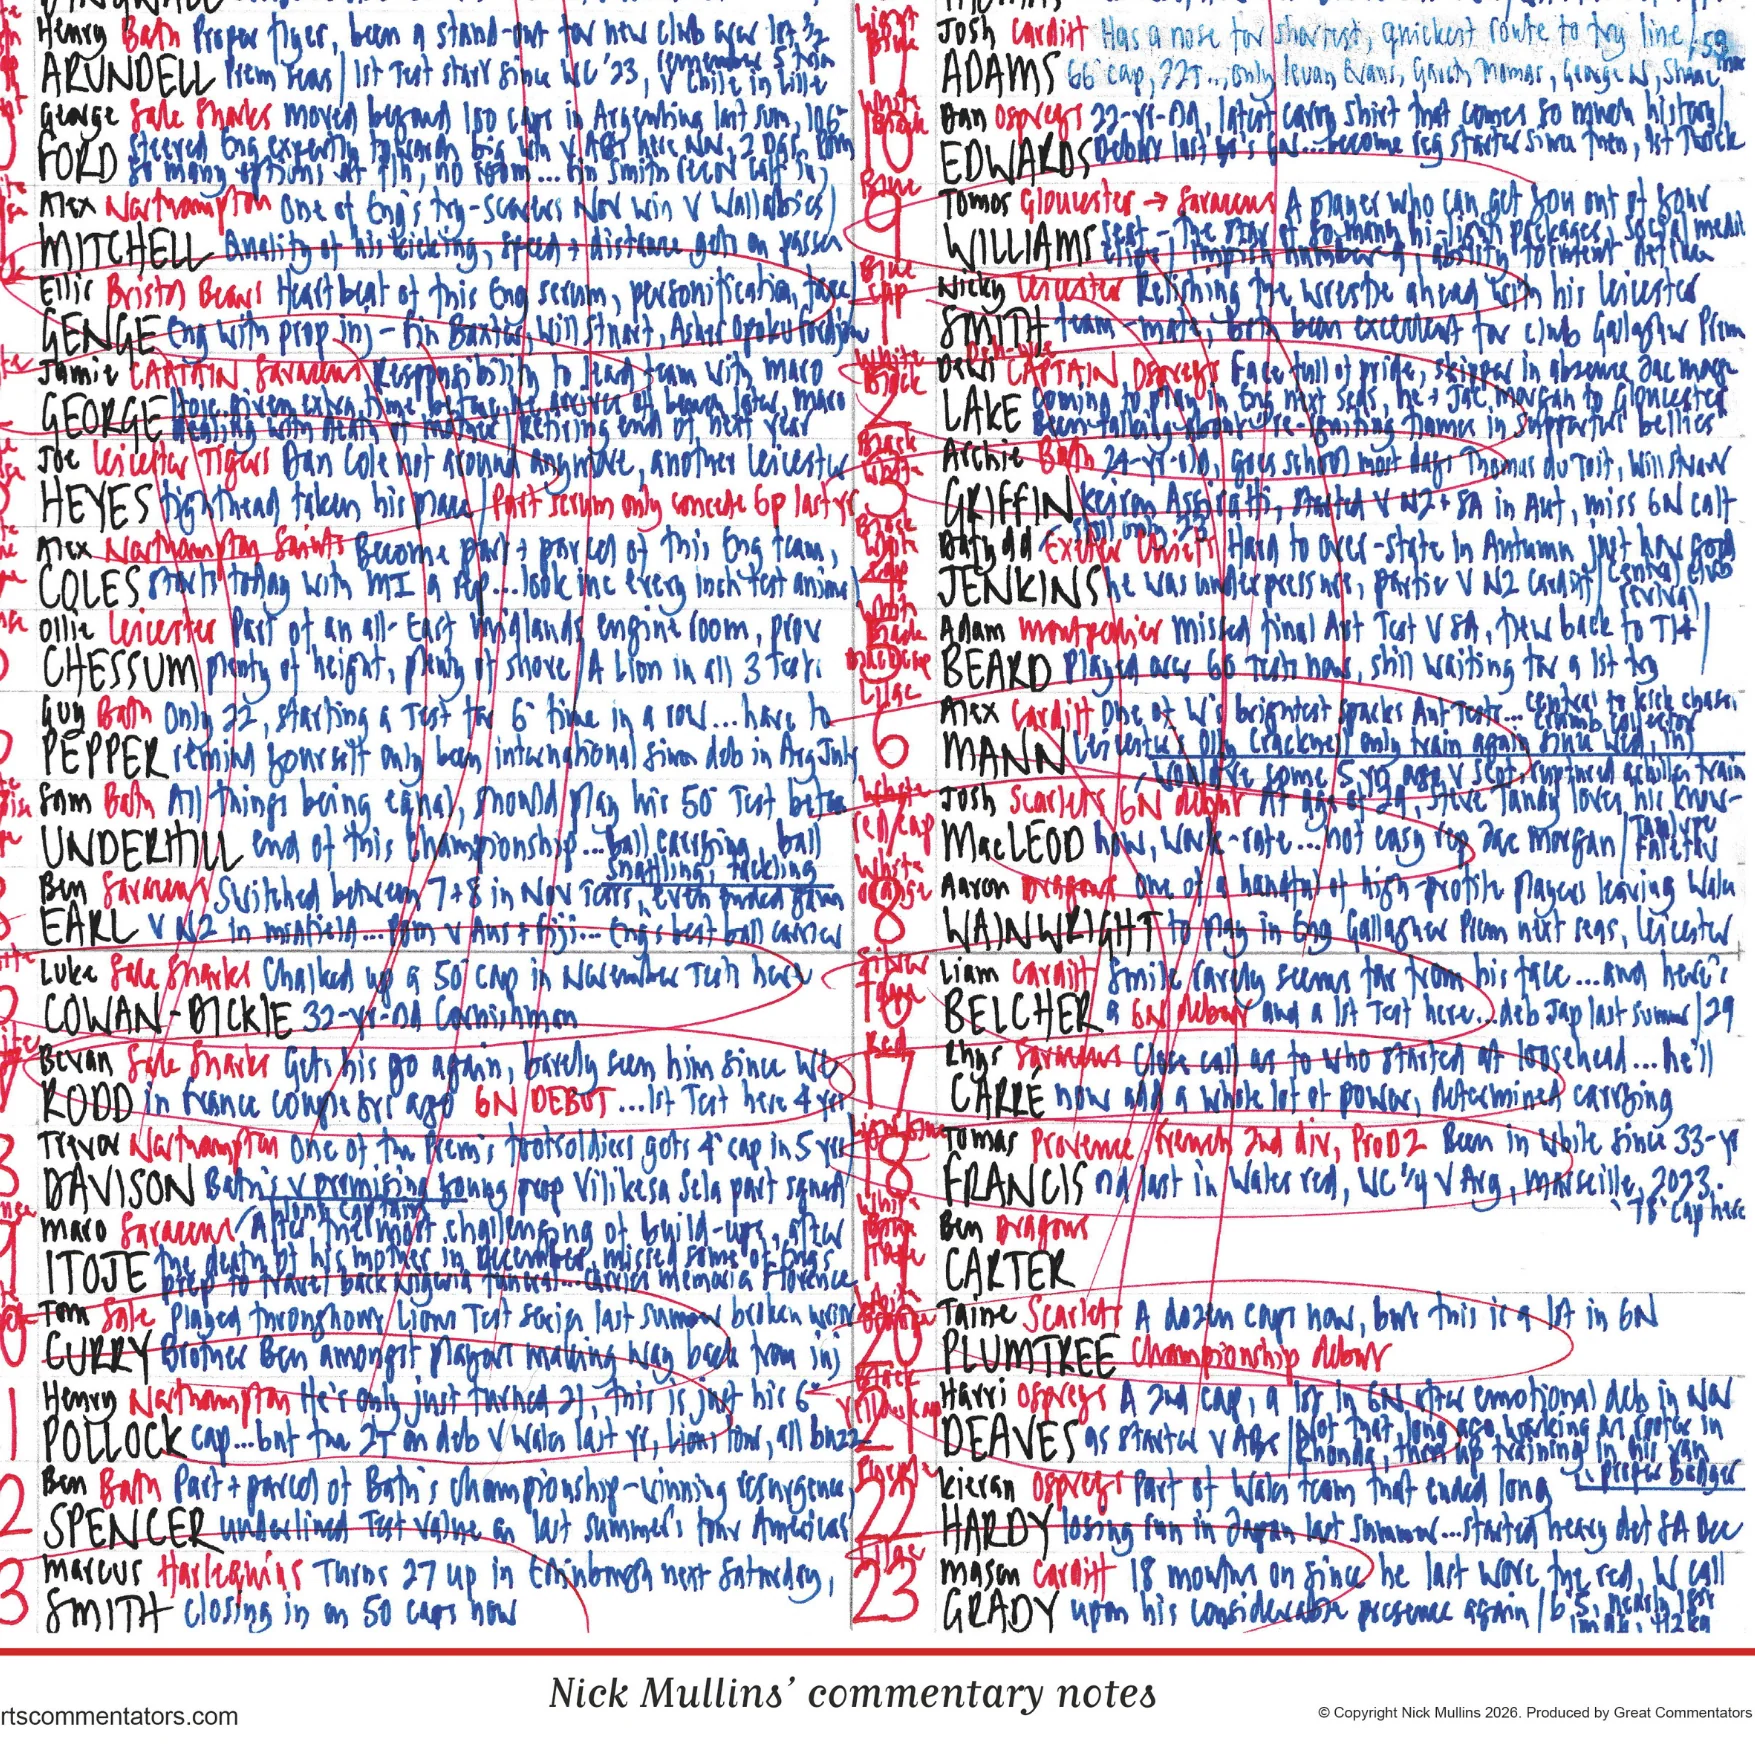 Henry Bath Proper flyer, been a stand-out for new club over 1st 1/2
ARUNDELL Prem seas / 1st Test start since WC '23, remember 5 tries v Chile in Lille
George Sale Sharks moved beyond 100 caps in Argentina last sum, 106
FORD steered Eng expertly to big win v ABs here Nov, 2 DGs, POM
so many options at F/h, no room... Fin Smith
Alex Northampton One of Eng's try-scorers Nov win v Wallabies
MITCHELL Quality of his kicking, speed + distance gets on passes
Ellis Bristol Bears Heartbeat of this Eng scrum, personification, face
GENGE Eng with prop inj - Fin Baxter, Will Stuart, Asher Opoku-Fordjour
Jamie CAPTAIN Saracens Responsibility to lead team with Maro
GEORGE
dealing with death of mother / Retiring end of next year
Joe Leicester Tigers Dan Cole not around anymore, another Leicester
HEYES tighthead taken his place / Part scrum only concede 6p last yr
Alex Northampton Saints Become part + parcel of this Eng team,
COLES starts today with MI a rep... looking every inch test animal
Ollie Leicester Part of an all-East Midlands engine room, prov
CHESSUM plenty of height, plenty of shove / A Lion in all 3 Tests
Guy Bath Only 22, starting a Test for 6 time in a row... have to
PEPPER remind yourself only been international since deb in Arg July
Sam Bath All things being equal, should play his 50 Test before
UNDERHILL end of this championship... ball carrying, ball
snaffling, tackling
Ben Saracens Switched between 7+8 in Nov Tests, even ended game
EARL v NZ in midfield... POM v Aus + Fiji... Eng's best ball carrier
Luke Sale Sharks Chalked up a 50 cap in November Tests here
COWAN-DICKIE 32-yr-old Cornishman
Bevan Sale Sharks Gets his go again, barely seen him since WC
RODD in France couple yrs ago 6N DEBUT ... 1st Test here 4 yrs
Trevor Northampton One of the Prem's footsoldiers gets 4 cap in 5 yrs
DAVISON Bath's v promising young prop Vilikesa Sela part squad
Maro Saracens After the most challenging of build-ups, after
ITOJE the death of his mother in December, missed some of Eng's
prep to travel back Nigeria funeral... memoria Florence
Tom Sale Played throughout Lions Test series last summer broken wrist
CURRY Brother Ben amongst players making way back from inj
Henry Northampton He's only just turned 21, this is just his 6
POLLOCK cap... but the 2T on deb v Wales last yr, Lions tour, all buzz
Ben Bath Part + parcel of Bath's championship-winning resurgence,
SPENCER underlined Test value on last summer's tour Americas
Marcus Harlequins Turns 27 up in Edinburgh next Saturday,
SMITH closing in on 50 caps now
Josh Cardiff Has a nose for shortest, quickest route to try line / 59
ADAMS 66 cap, 22T..., only Ieuan Evans, Gareth Thomas, George N, Shane
10 Dan Ospreys 22-yr-old, latest carry shirt that comes so much history
EDWARDS Debut last yr's 6N... become reg starter since then, 1st Twick
9 Tomos Gloucester → Saracens A player who can get you out of your
WILLIAMS seat - the star of so many hi-light packages, social media
Blue cap
1 Nicky Leicester Relishing the wrestle ahead with his Leicester
SMITH team-mate, both been excellent for club Gallagher Prem
2 Dewi CAPTAIN Ospreys Face full of pride, skipper in absence Jac Morgan
LAKE coming to play in Eng next seas, he + Jac Morgan to Gloucester
3 Archie Bath 24-yr-old, goes school most days Thomas du Toit, Will Stuart
GRIFFIN Keiron Assiratti, started v NZ + SA in Aut, miss 6N calf
still only 23
4 Dafydd Exeter Chiefs Hard to over-state in Autumn just how good
JENKINS he was under pressure, partic v NZ Cardiff / central club revival
5 Adam Montpellier missed final Aut Test v SA, flew back to T14
BEARD Played over 60 Tests now, still waiting for a 1st try
Lilac
6 Alex Cardiff One of W's brightest sparks Aut Tests... central to kick chase,
crumb collector
MANN Leicester's Olly Cracknell only train again since Wed, inj
would've some 5 yrs ago v Scot, ruptured achilles train
Josh Scarlets 6N debut At age of 29, Steve Tandy loves his know-
MacLEOD how, work-rate... not easy rep Jac Morgan / Taulupe Faletau
8 Aaron Dragons One of a handful of high-profile players leaving Wales
WAINWRIGHT to play in Eng Gallagher Prem next seas, Leicester
16 Liam Cardiff Smile rarely seems far from his face... and here's
BELCHER a 6N debut and a 1st Test here... deb Jap last summer / 29
Red
17 Rhys Saracens Close call as to who started at loosehead... he'll
CARRÉ now add a whole lot of power, determined carrying
18 Tomas Provence / French 2nd div, ProD2 Been in while since 33-yr
FRANCIS old last in Wales red, WC 1/4 v Arg, Marseille, 2023.
78 cap here
19 Ben Dragons
CARTER
20 Taine Scarlets A dozen caps now, but this is a 1st in 6N
PLUMTREE Championship debut
21 Harri Ospreys A 2nd cap, a 1st in 6N after emotional deb in Nov
DEAVES as starter v ABs / Not that long ago working as roofer in
Rhondda, then up training in his van
proper badger
22 Kieran Ospreys Part of Wales team that ended long
HARDY losing run in Japan last summer... started heavy def SA Dec
Lilac
23 Mason Cardiff 18 months on since he last wore the red, W call
GRADY upon his considerable presence again / 6'5, nearly 18st
Nick Mullins' commentary notes
rtscommentators.com
© Copyright Nick Mullins 2026. Produced by Great Commentators